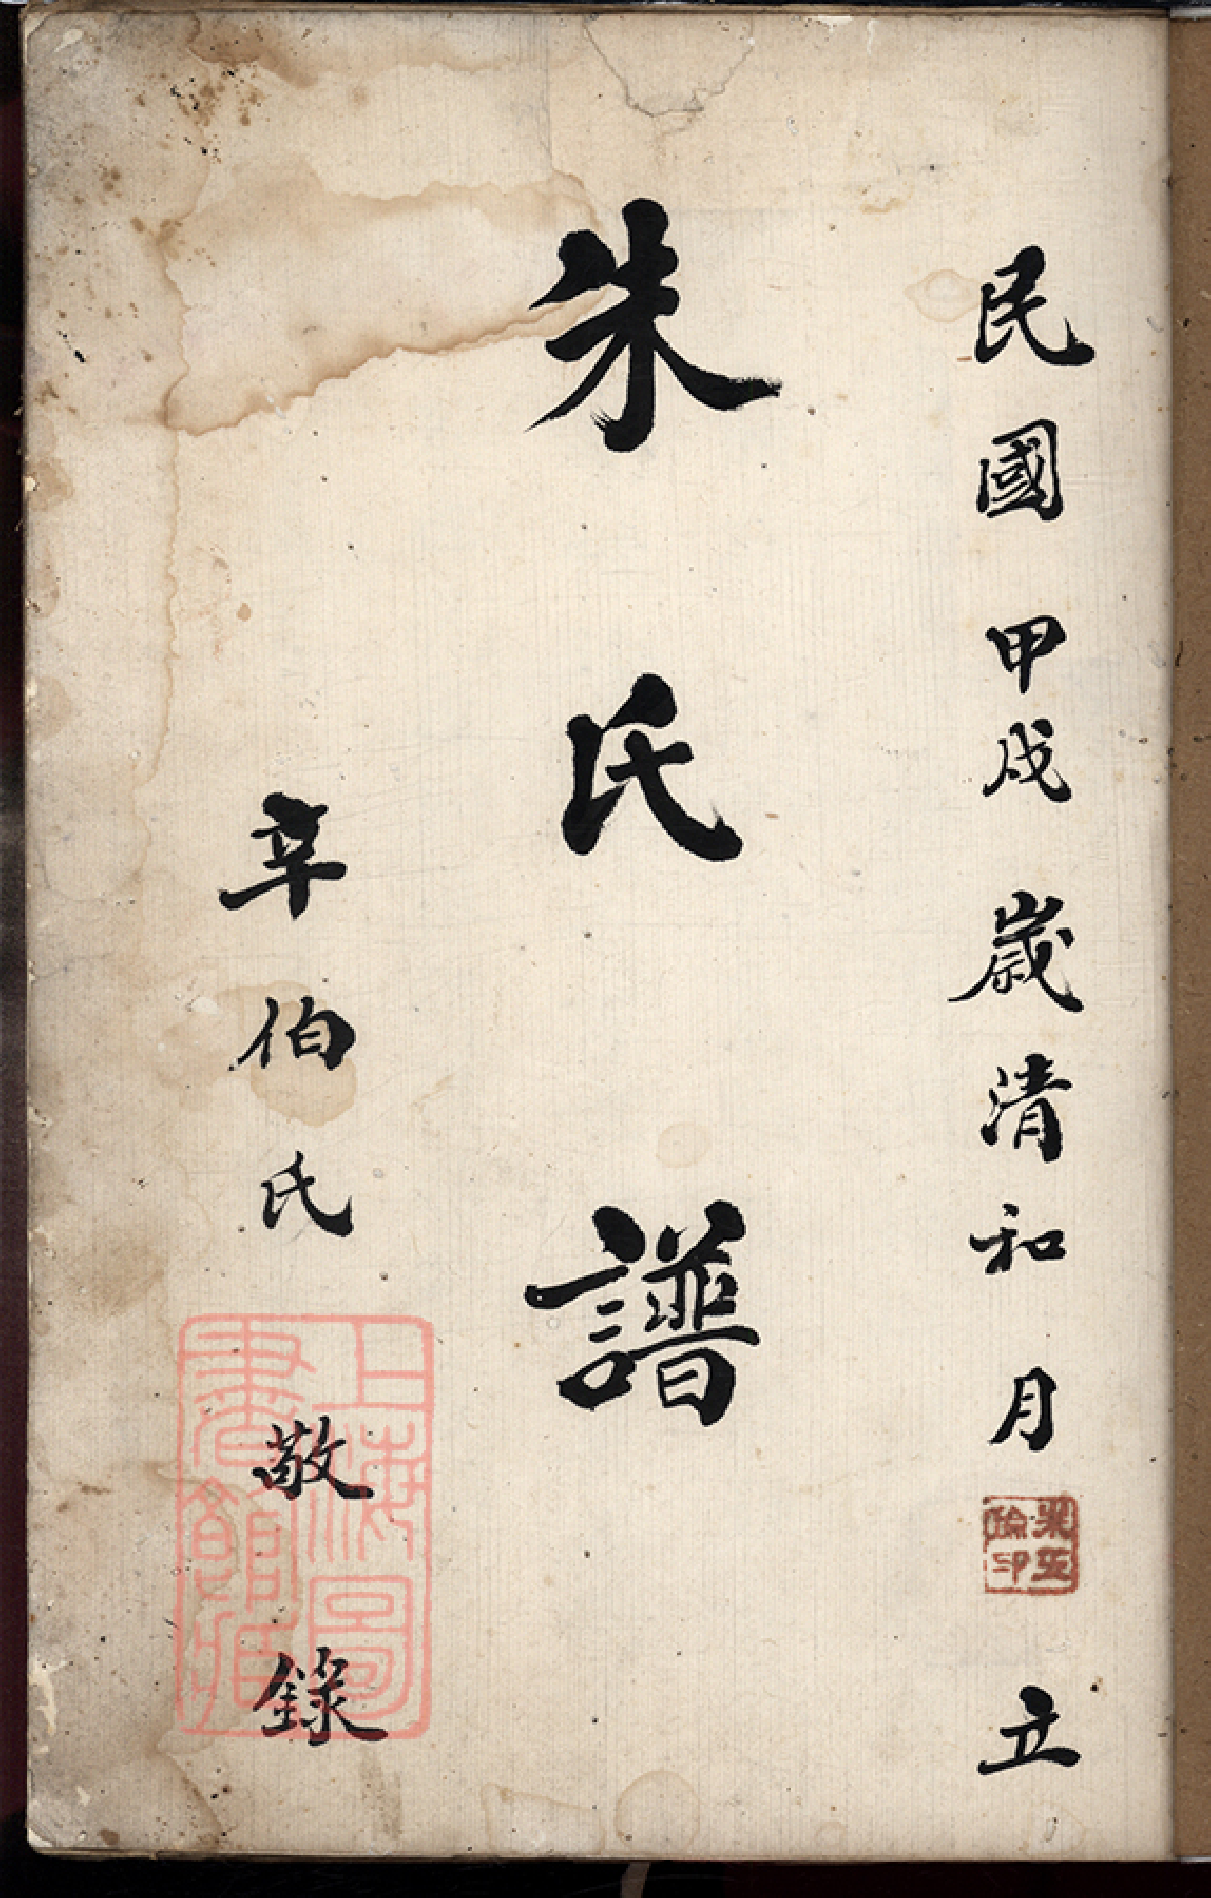 民國甲戌歲清和月立
朱氏譜
伯氏敬錄
上海圖書館藏